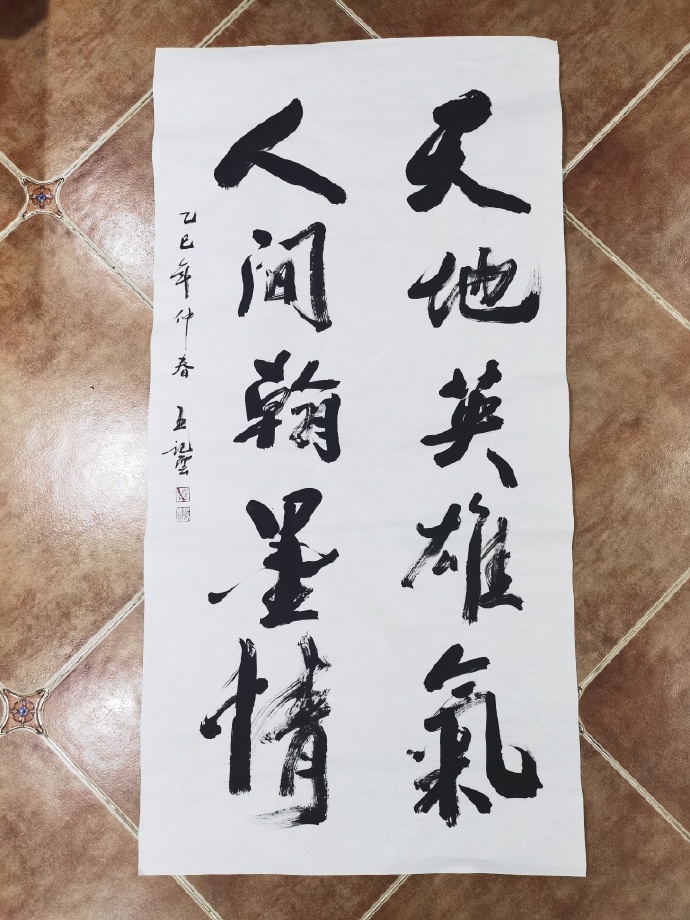 天地英雄氣
人间翰墨情
乙巳年仲春
王記雲